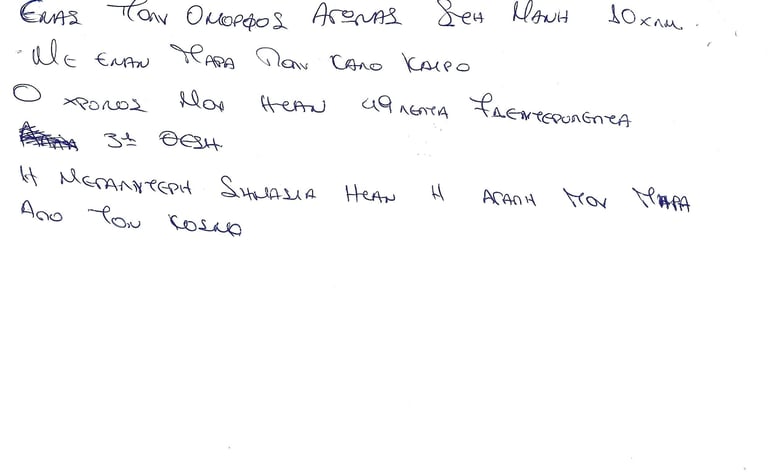 ΕΝΑΣ ΠΟΛΥ ΟΜΟΡΦΟΣ ΑΓΩΝΑΣ ΣΤΗ ΜΑΝΗ 10ΧΛΜ.
ΜΕ ΕΝΑΝ ΠΑΡΑ ΠΟΛΥ ΚΑΛΟ ΚΑΙΡΟ
Ο ΧΡΟΝΟΣ ΜΟΥ ΗΤΑΝ 49 ΛΕΠΤΑ 7 ΔΕΥΤΕΡΟΛΕΠΤΑ
3η ΘΕΣΗ
Η ΜΕΓΑΛΥΤΕΡΗ ΣΗΜΑΣΙΑ ΗΤΑΝ Η ΑΓΑΠΗ ΠΟΥ ΠΗΡΑ
ΑΠΟ ΤΟΝ ΚΟΣΜΟ